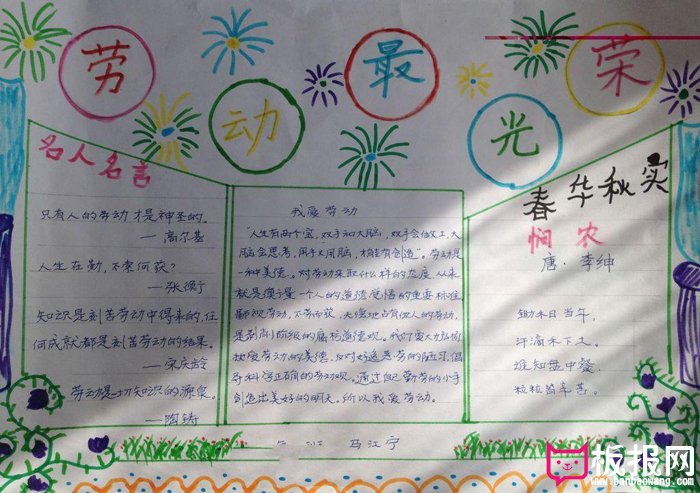 劳动最光荣
名人名言
只有人的劳动才是神圣的。
——高尔基
人生在勤,不索何获?
——张衡
知识是刻苦劳动中得来的,任
何成就都是刻苦劳动的结果。
——宋庆龄
劳动是一切知识的源泉。
——陶铸
我爱劳动
"人生有两个宝,双手和大脑,双手会做工,大
脑会思考,用手又用脑,才能有创造"。劳动是
一种美德。对劳动采取什么样的态度,从来
就是衡量一个人的道德觉悟的重要标准
鄙视劳动,不劳而获,无偿地占有他人的劳动,
是剥削阶级的腐朽道德观。我们要大力弘扬
热爱劳动的美德,反对好逸恶劳的陋习,倡
导科学正确的劳动观。通过自己勤劳的小手
创造出美好的明天。所以我爱劳动。
春华秋实
悯农
唐·李绅
锄禾日当午,
汗滴禾下土。
谁知盘中餐,
粒粒皆辛苦。
班 马江宁
板报网
www.banbaowang.com